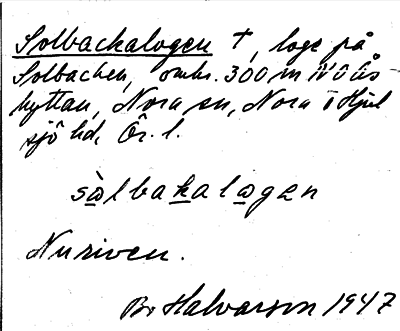 Solbackalogen †, loge på
Solbacken, omkr. 300 m NO Ås-
hyttan, Nora sn, Nora o Hjul
sjö hd, Ör. l.
sòlbakalogen
Nuriven.
Br Halvarson 1947